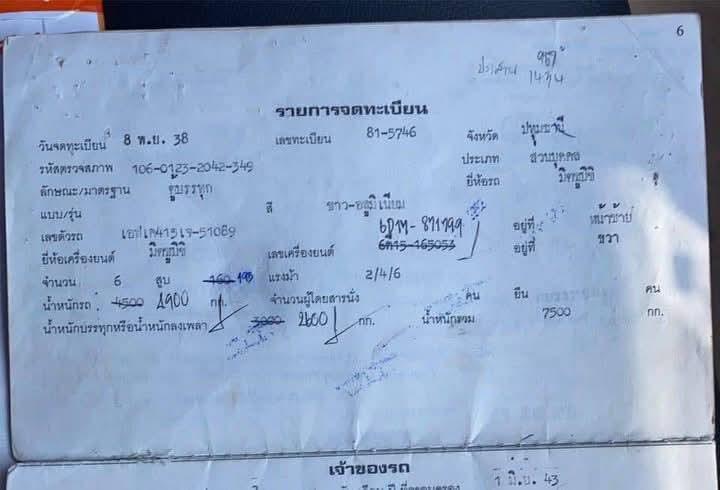 6
ประสาน
14
รายการจดทะเบียน
วันจดทะเบียน 8 พ.ย. 38 เลขทะเบียน 81-5746 จังหวัด ปทุมธานี
รหัสตรวจสภาพ 106-0123-2042-349 ประเภท ส่วนบุคคล
ลักษณะ/มาตรฐาน ตู้บรรทุก ยี่ห้อรถ มิตซูบิชิ
แบบ/รุ่น สี ขาว-อลูมิเนียม
เลขตัวรถ เอฟเค415เจ-51089 อยู่ที่ หน้าซ้าย
ยี่ห้อเครื่องยนต์ มิตซูบิชิ เลขเครื่องยนต์ 6ดี15-165053 อยู่ที่ ขวา
จำนวน 6 สูบ 160 195 แรงม้า 2/4/6
น้ำหนักรถ 4500 4900 กก. จำนวนผู้โดยสารนั่ง คน ยืน คน
น้ำหนักบรรทุกหรือน้ำหนักลงเพลา 3000 2600 กก. น้ำหนักรวม 7500 กก.
เจ้าของรถ
1 มิ.ย. 43